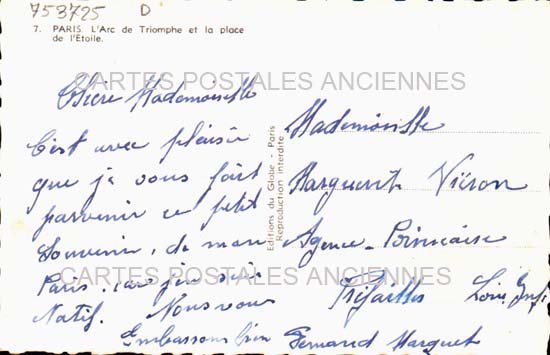 753725 D
7. PARIS. L'Arc de Triomphe et la place
de l'Étoile.
CARTES POSTALES ANCIENNES
Chère Mademoiselle
C'est avec plaisir
que je vous fait
parvenir ce petit
Souvenir, de mon
Paris. car j'en suis
Natif. Nous vous
Embrassons bien
Fernand Marquet
Editions du Globe - Paris
Reproduction interdite
Mademoiselle
Marguerite
Agence
Préfailles Loire Inf.
CARTES POSTALES ANCIENNES